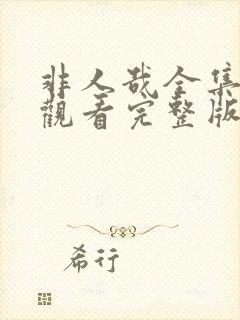 非人哉全集
觀看完整版
希行